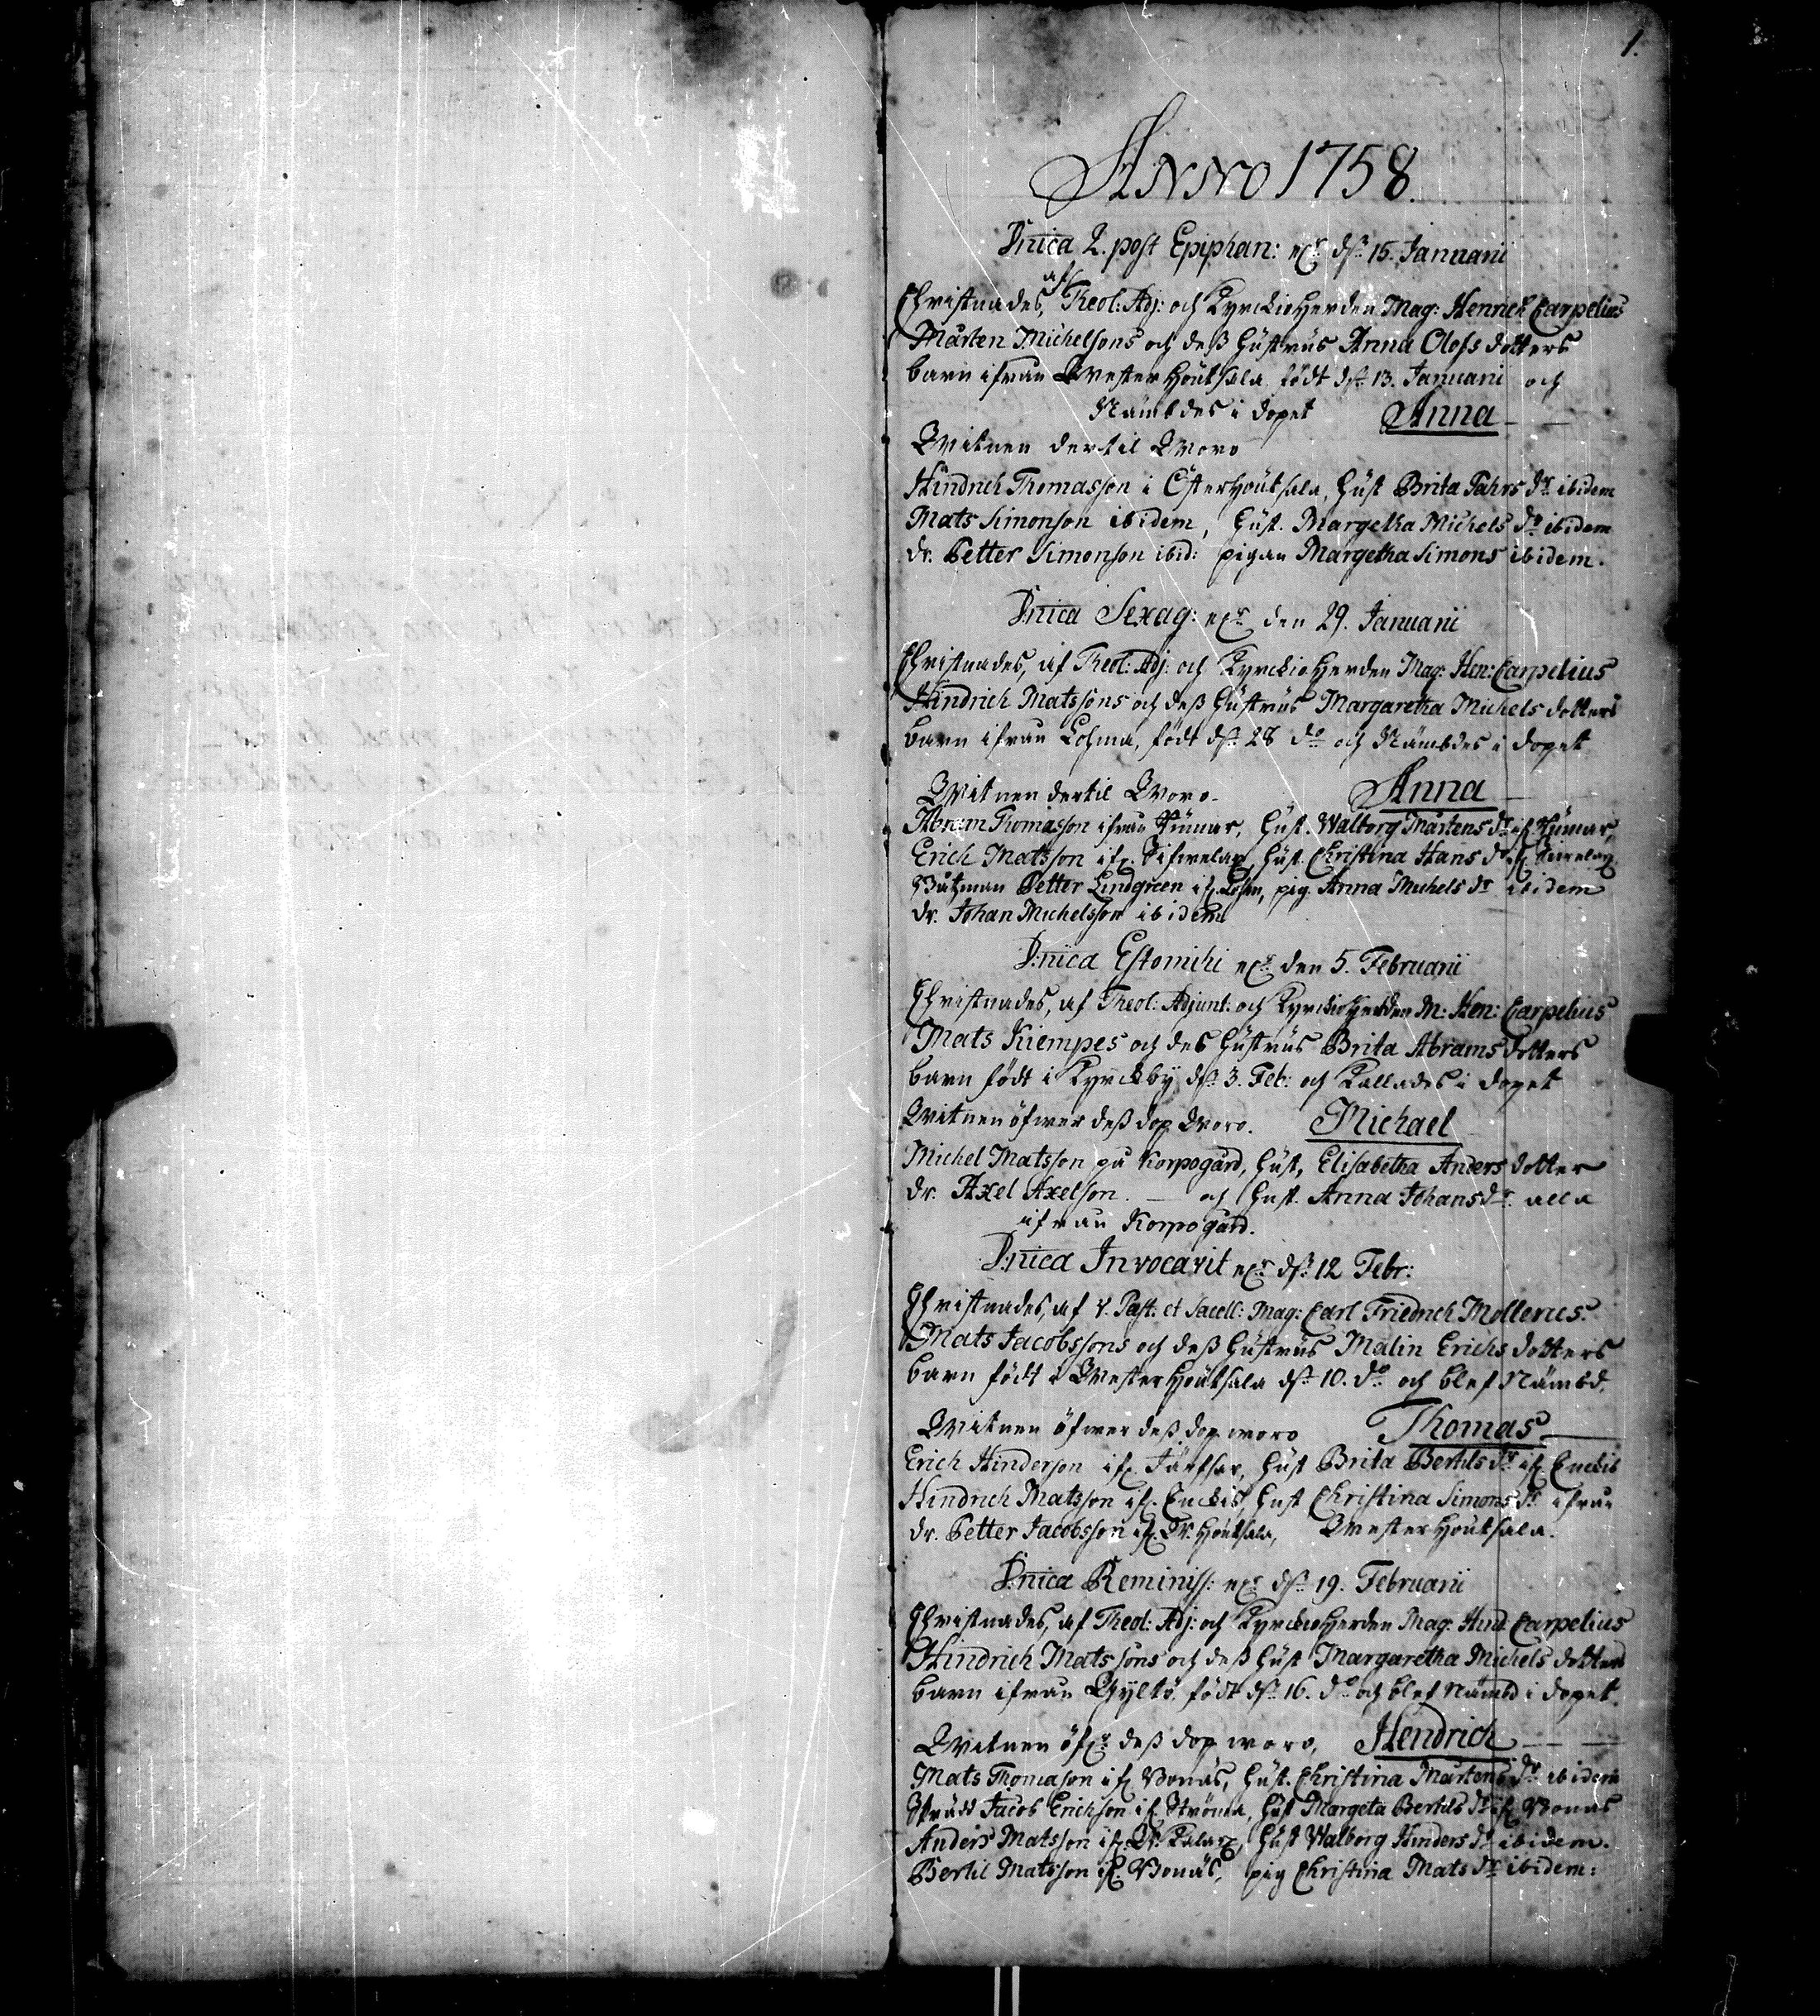 1.
Anno 1758.
Dnica 2. post Epiphan: elr dn 15. Januarii
af
Christnades, Theol: Adj: och Kyrckioherden Mag: Henrich Carpelius
Mårten Michelsons och deß hustrus Anna Olofs dotters
barn ifrån Wester Houtskala födt dn 13. Januarii och
Nämbdes i dopet Anna
Witnen dertil Woro
Hindrich Thomasson i Öster Houtskala, hust Brita Pährs dr ibidem
Mats Simonson ibidem, hust. Margetha Michels dr ibidem
dr. Petter Simonson ibid: pigan Margetha Simons ibidem.
Dnica Sexag: elr den 29. Januarii
Christnades, af Theol: Adj: och Kyrckioherden Mag: Hen: Carpelius
Hindrich Matssons och deß hustrus Margaretha Michels dotters
barn ifrån Lohma, födt dn 28 do och Nämbdes i dopet
Witnen dertil Woro. Anna
Abram Thomasson ifrån hust. Walborg Mårtens dr if.
Erich Matsson ifr. hust. Christina Hans dr ifr.
Båtzman Petter Lindgreen ifr. Lohm, pig. Anna Michels dr ibidem
dr. Johan Michelsson ibidem
Dnica Estomihi elr den 5. Februarii
Christnades, af Theol: Adjunt: och Kyrckioherden M: Hen: Carpelius
Mats Kiempes och des hustrus Brita Abrams dotters
barn födt i Kyrckby dn 3. Feb: och Kallades i dopet
Witnen öfwer deß dop Woro. Michael
Michel Matsson på Korpogård, hust, Elisabetha Anders dotter
dr. Axel Axelson. — och hust. Anna Johansdr. alla
ifrån Korpogård.
Dnica Invocavit elr dn 12 Febr:
Christnades, af V. Past: et Sacell: Mag: Carl Friedrich Mollerus.
Mats Jacobssons och deß hustrus Malin Erichs dotters
barn födt i Wester Houtskala dn 10. do och blef Nämbd.
Witnen öfwer deß dop woro Thomas
Erich Hinderson ifr. Järfsar, hust Brita Bertils dr ifr. Enckis
Hindrich Matsson ifr. Enckis hust Christina Simons dr ifrån
dr. Petter Jacobsson ifr. W. Houtskala, Wester Houtskala.
Dnica Reminiss: elr dn 19. Februarii
Christnades, af Theol: Adj: och Kyrckioherden Mag: Hind Carpelius
Hindrich Matssons och deß hust Margaretha Michels dotters
barn ifrån Gyltö födt dn 16. do och blef nämbd i dopet.
Witnen öfr deß dop woro, Hendrich
Mats Thomason ifr. Bonäs, hust. Christina Mårtens dr ibidem
Jacob Erichson if. Ströma, hust Margeta Bertils dr ifr. Bonäs
Anders Matsson ifr. hust Walborg Hinders dr ibidem.
Bertil Matsson ifr. Bonäs, pig Christina Mats dr ibidem: